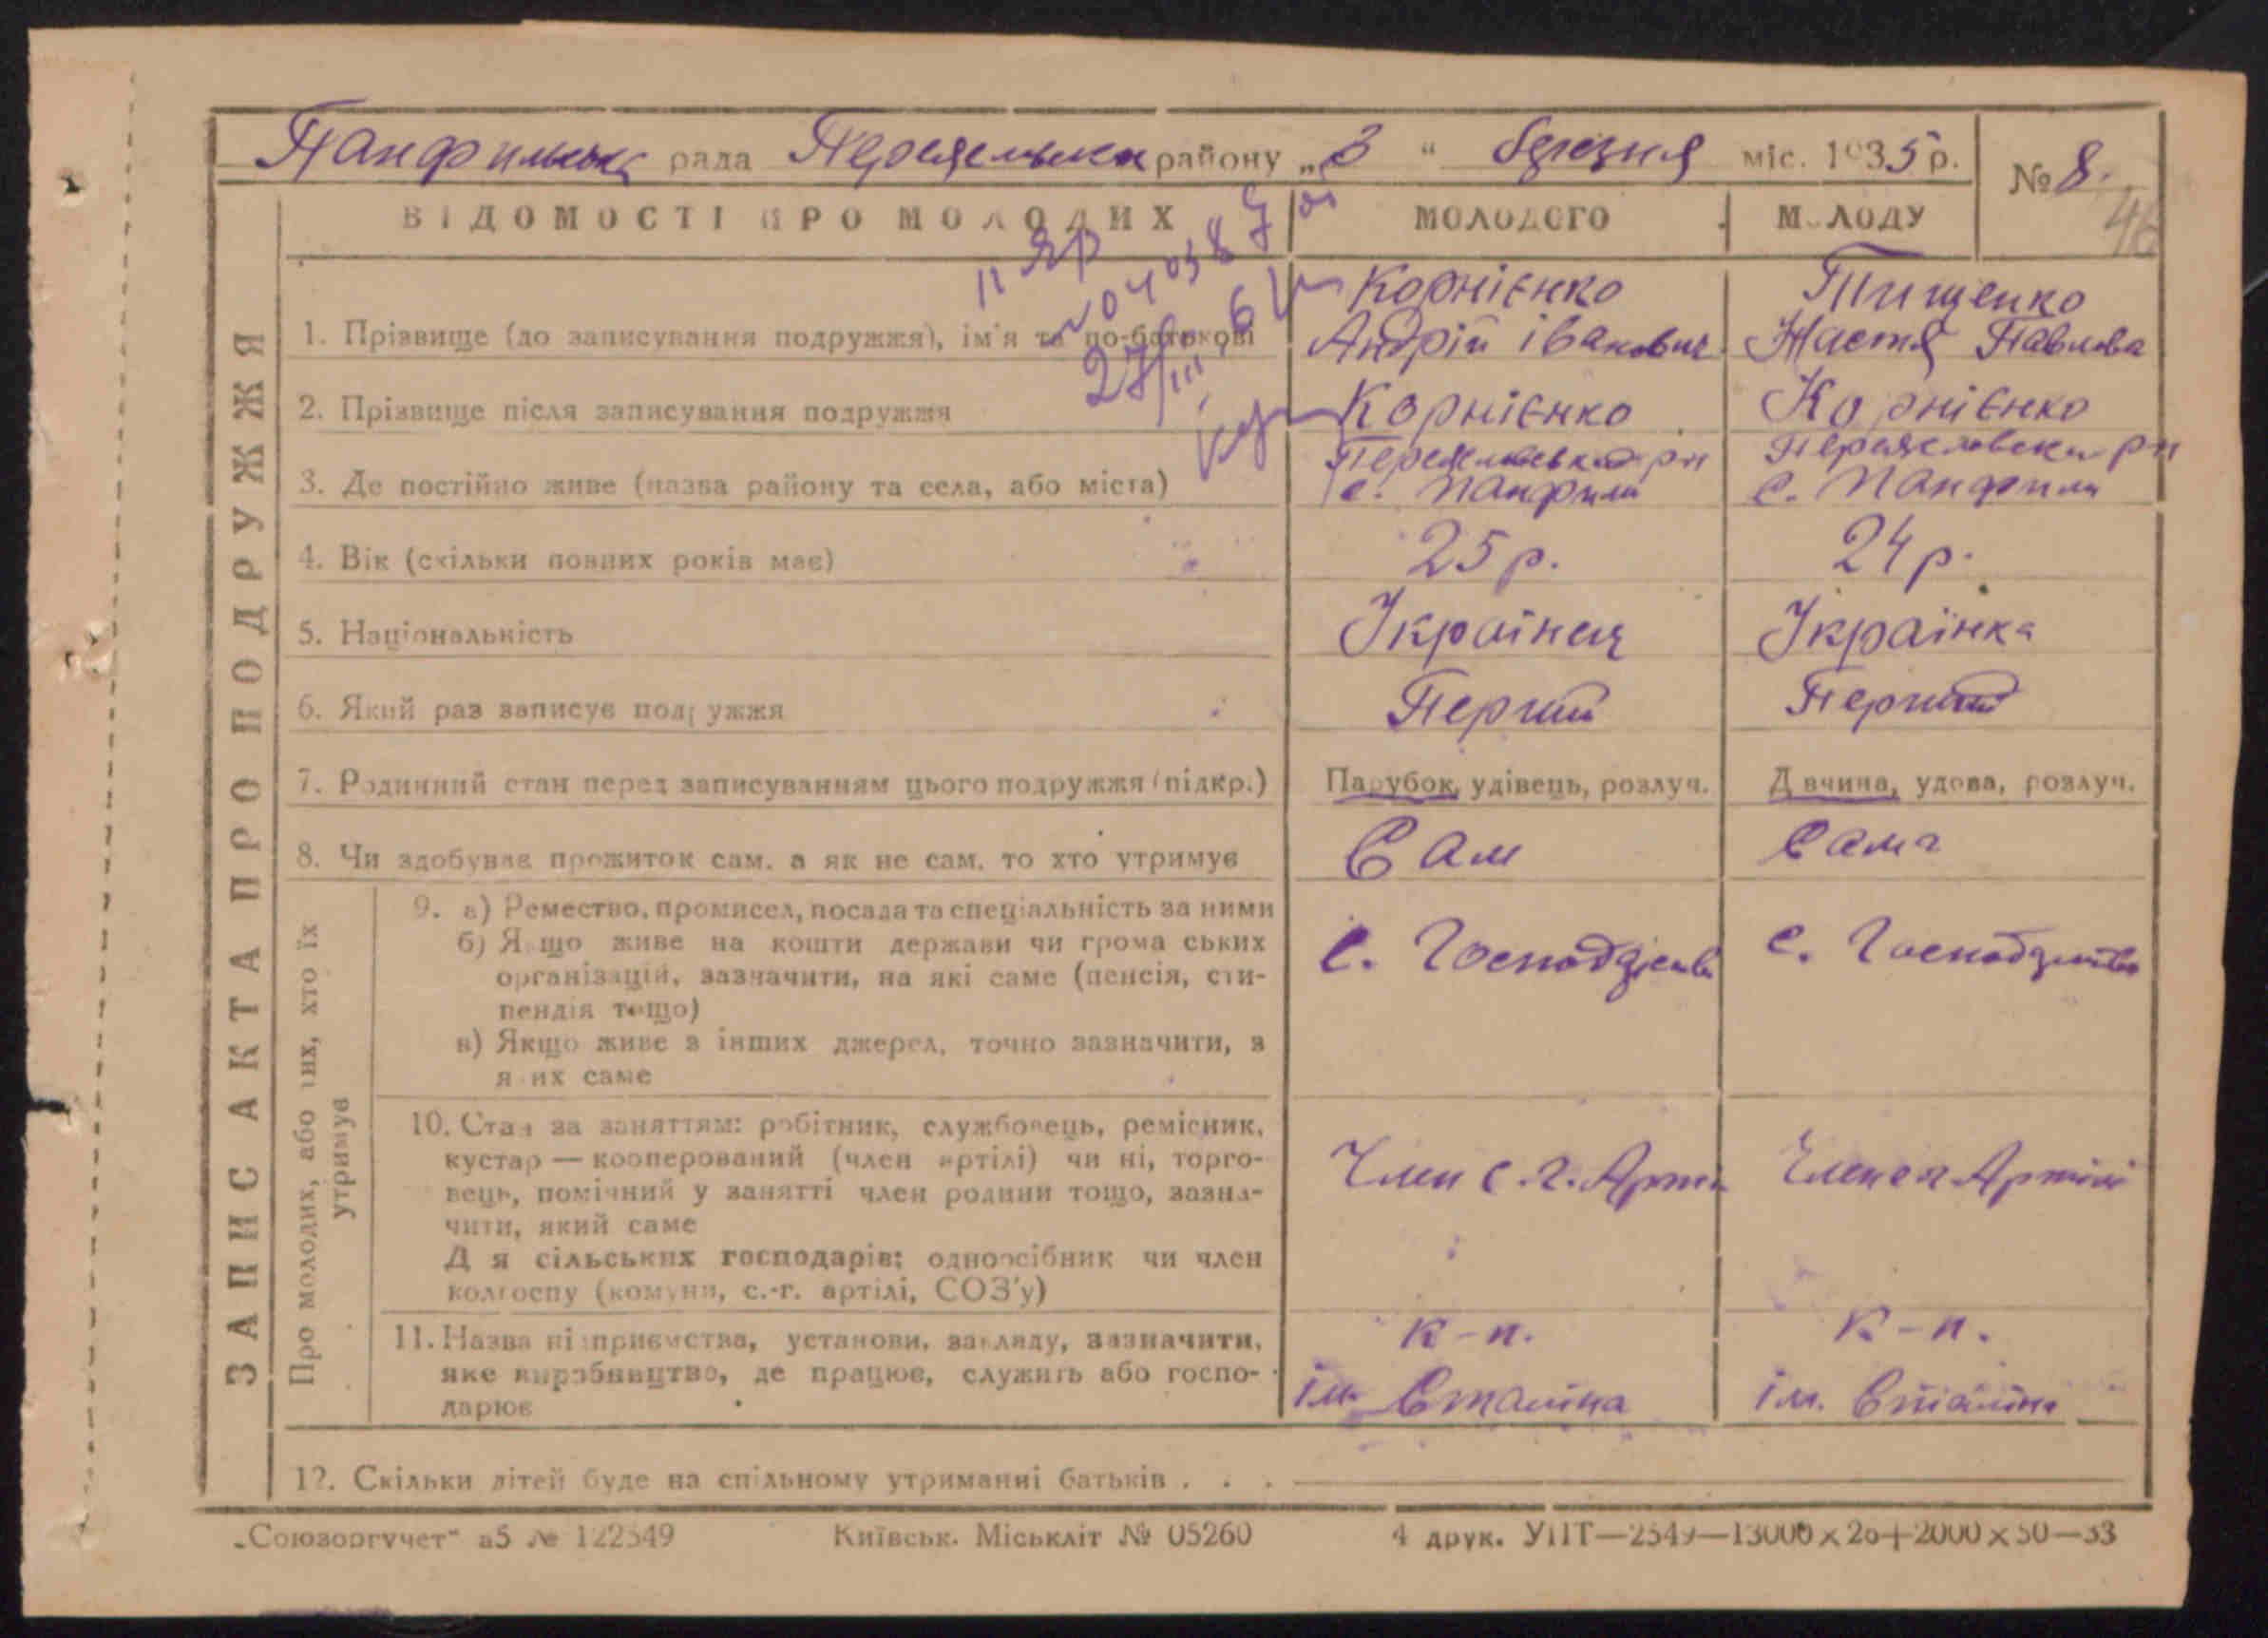 Панфильська рада Переяславська району „3“ березня міс. 1935 р.
№ 8.
46
ВІДОМОСТІ ПРО МОЛОДИХ
МОЛОДОГО
МОЛОДУ
ЗАПИС АКТА ПРО ПОДРУЖЖЯ
1. Прізвище (до записування подружжя), ім'я та по-батькові
Корнієнко
Андрій іванович
Тищенко
Настя Павлова
27/III
2. Прізвище після записування подружжя
Корнієнко
Корнієнко
3. Де постійно живе (назва району та села, або міста)
рн
с. Панфили
рн
с. Панфили
4. Вік (скільки повних років має)
25 р.
24 р.
5. Національність
Українец
Українка
6. Який раз записує подружжя
Перший
Перший
7. Родинний стан перед записуванням цього подружжя (підкр.)
Парубок, удівець, розлуч.
Д вчина, удова, розлуч.
8. Чи здобуває прожиток сам, а як не сам, то хто утримує
Сам
Сама
Про молодих, або тих, хто їх
утримує
9. а) Ремество, промисел, посада та спеціальність за ними
б) Якщо живе на кошти держави чи грома ських
організацій, зазначити, на які саме (пенсія, сти-
пендія тощо)
в) Якщо живе з інших джерел, точно зазначити, з
я их саме
с.
с.
10. Стан за заняттям: робітник, службовець, ремісник,
кустар — кооперований (член артілі) чи ні, торго-
вець, помічний у занятті член родини тощо, зазна-
чити, який саме
Д я сільських господарів: одноосібник чи член
колгоспу (комуни, с.-г. артілі, СОЗ'у)
Член с.г. Арті
Член сг Артілі
11. Назва підприємства, установи, закладу, зазначити,
яке виробництво, де працює, служить або госпо-
дарює
к-п.
ім. Сталіна
к-п.
ім. Сталіна
12. Скільки дітей буде на спільному утриманні батьків . . .
„Союзоргучет“ а5 № 122549
Київськ. Міськліт № 05260
4 друк. УПТ—2549—13000×26+2000×50—33